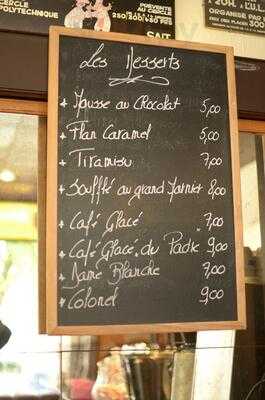 CERCLE
POLYTECHNIQUE
SAIT
ORGANISE PAR
Les Desserts
+ Mousse au Chocolat 5,00
+ Flan Caramel 5,00
+ Tiramisu 7,00
+ Soufflé au grand Marnier 8,00
+ Café Glacé 7,00
+ Café Glacé du Padre 9,00
+ Dame Blanche 7,00
+ Colonel 9,00